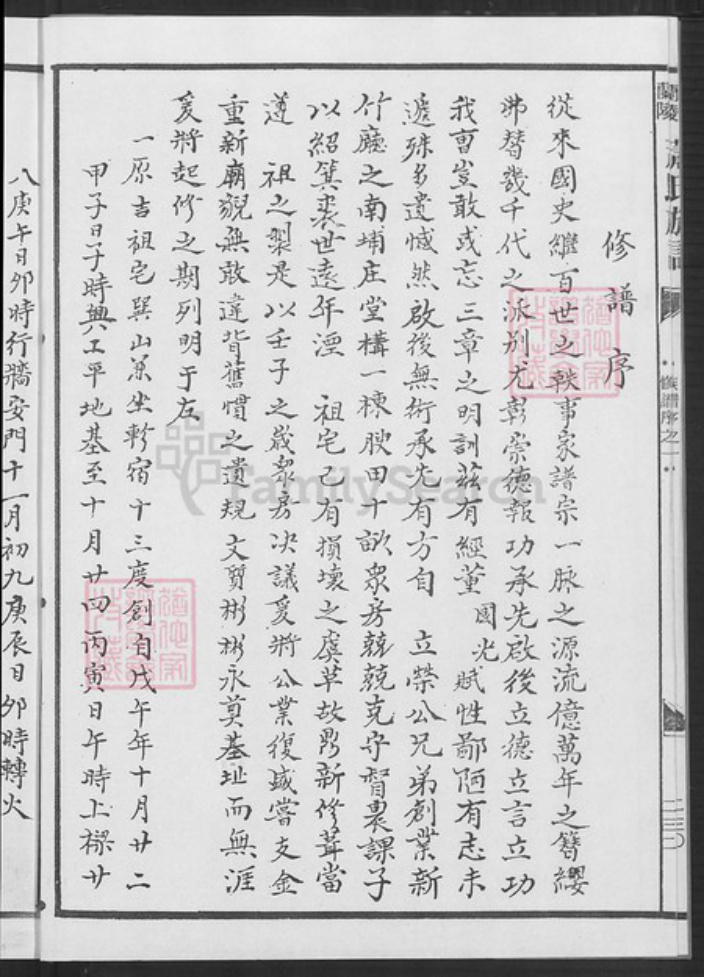 修譜序
從來國史繼百世之軼事家譜宗一脉之源流億萬年之簪纓
弗替幾千代之派別尤彰崇德報功承先啟後立德立言立功
我曹豈敢或忘三章之明訓茲有經董國光賦性鄙陋有志未
遞殊多遺憾然啟後無術承先有方自 立榮公兄弟創業新
竹廳之南埔庄堂構一棟腴田十畝衆房兢兢克守督裏課子
以紹箕裘世遠年湮 祖宅已有損壞之虞革故鼎新修葺當
遵 祖之製是以壬子之歲衆房决議爰將公業復盛嘗支金
重新廟貌無敢違背舊慣之遺規文質彬彬永奠基址而無涯
爰將起修之期列明于左
一原吉祖宅巽山兼坐軫宿十三度創自戊午年十月廿二
甲子日子時興工平地基至十月廿四丙寅日午時上樑廿
八庚午日卯時行牆安門十一月初九庚辰日卯時轉火
蘭陵 蕭氏族譜
族譜序之二
二三〇
二三二
FamilySearch